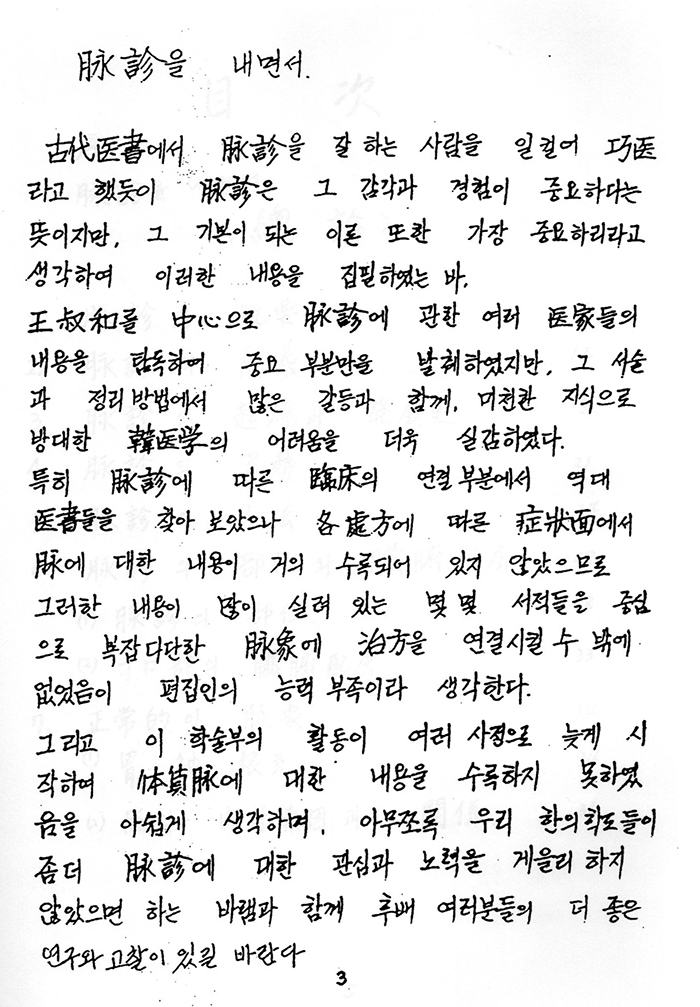 脉診을 내면서.
古代医書에서 脉診을 잘 하는 사람을 일컬어 巧医
라고 했듯이 脉診은 그 감각과 경험이 중요하다는
뜻이지만, 그 기본이 되는 이론 또한 가장 중요하리라고
생각하여 이러한 내용을 집필하였는 바,
王叔和를 中心으로 脉診에 관한 여러 医家들의
내용을 탐독하여 중요 부분만을 발췌하였지만, 그 서술
과 정리방법에서 많은 갈등과 함께, 미천한 지식으로
방대한 韓医学의 어려움을 더욱 실감하였다.
특히 脉診에 따른 臨床의 연결부분에서 역대
医書들을 찾아 보았으나 各處方에 따른 症狀面에서
脉에 대한 내용이 거의 수록되어 있지 않았으므로
그러한 내용이 많이 실려 있는 몇몇 서적들을 중심
으로 복잡다단한 脉象에 治方을 연결시킬 수 밖에
없었음이 편집인의 능력부족이라 생각한다.
그리고 이 학술부의 활동이 여러 사정으로 늦게 시
작하여 体質脉에 대한 내용을 수록하지 못하였
음을 아쉽게 생각하며, 아무쪼록 우리 한의학도들이
좀더 脉診에 대한 관심과 노력을 게을리 하지
않았으면 하는 바램과 함께 후배 여러분들의 더 좋은
연구와 고찰이 있길 바란다
3